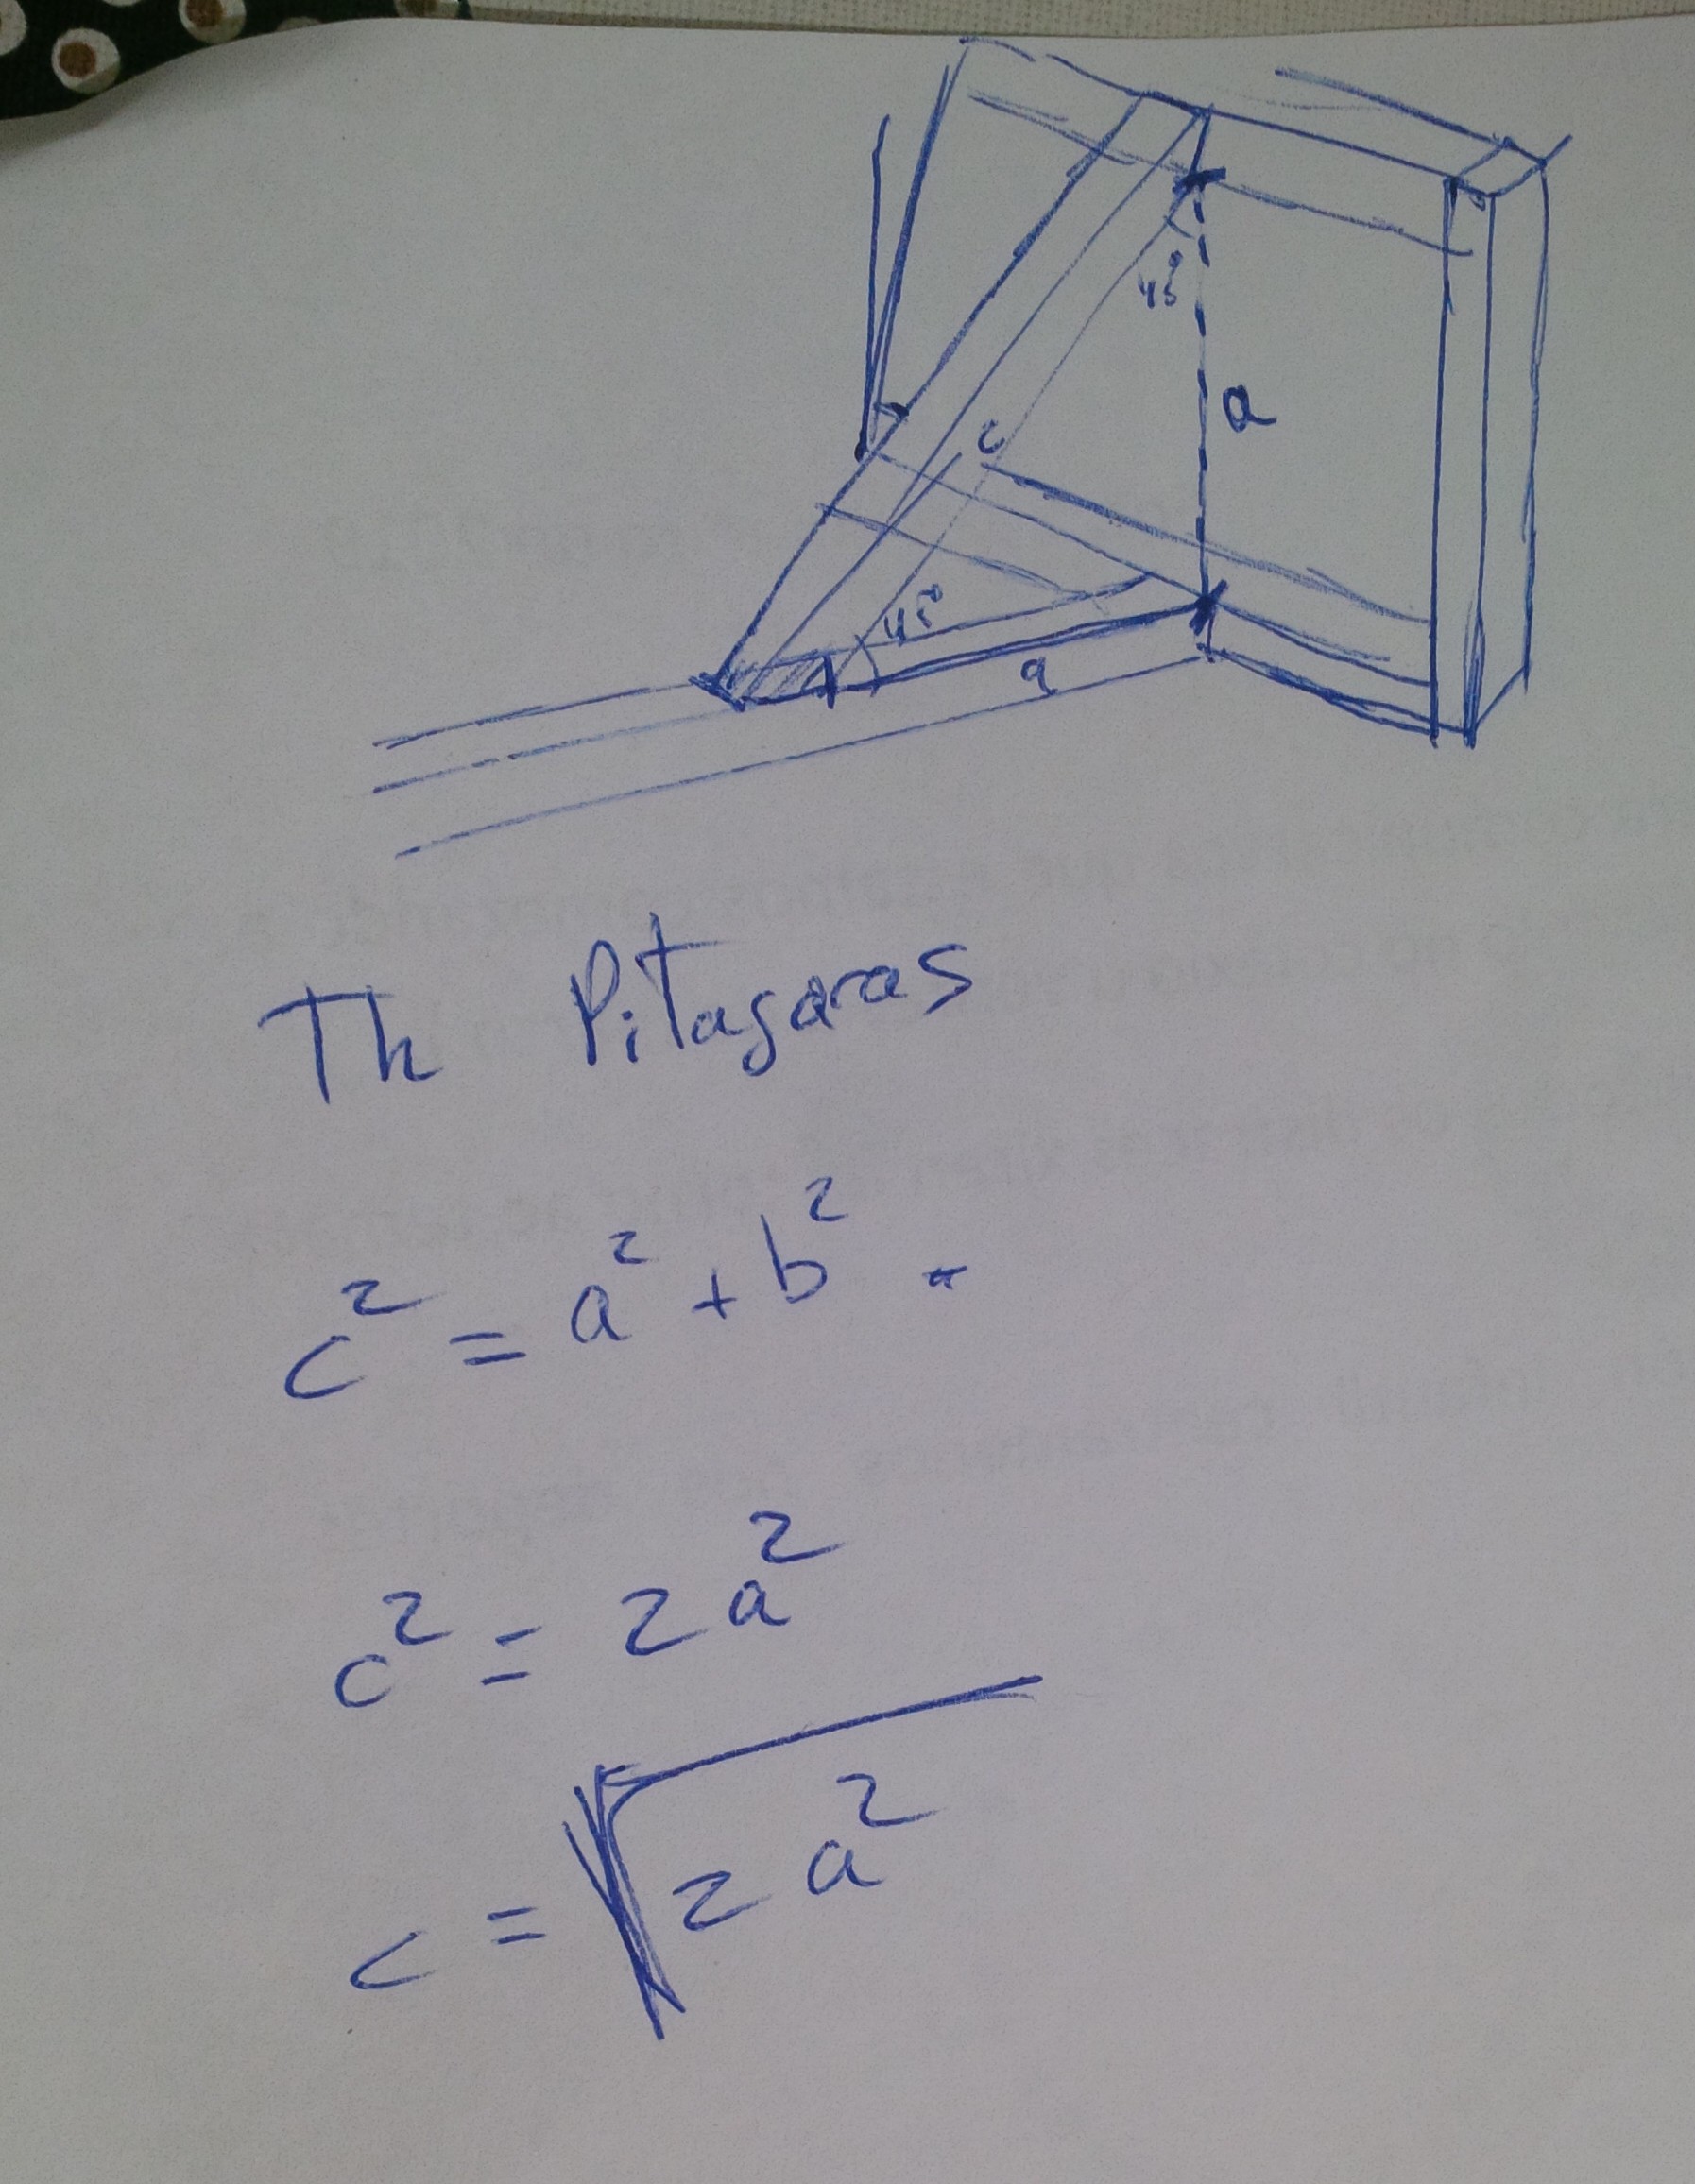 45°
a
c
45°
a
Th Pitagoras
c² = a² + b²
c² = 2a²
c = √2a²